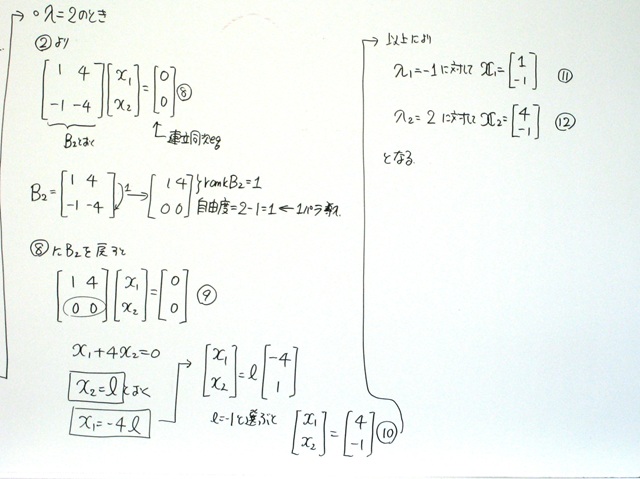 → ○ λ=2のとき
② より
[1 4; -1 -4] [x₁; x₂] = [0; 0] ⑧
B₂とおく
↑ 連立同次eq
B₂ = [1 4; -1 -4] 1 → [1 4; 0 0] } rank B₂=1
自由度=2-1=1 ←1パラメタ
⑧ にB₂を戻すと
[1 4; 0 0] [x₁; x₂] = [0; 0] ⑨
x₁+4x₂=0
x₂=l とおく
x₁=-4l
→ [x₁; x₂] = l [-4; 1]
l=-1と選ぶと [x₁; x₂] = [4; -1] ⑩
→ 以上により
λ₁=-1に対して x₁=[1; -1] ⑪
λ₂=2に対して x₂=[4; -1] ⑫
となる